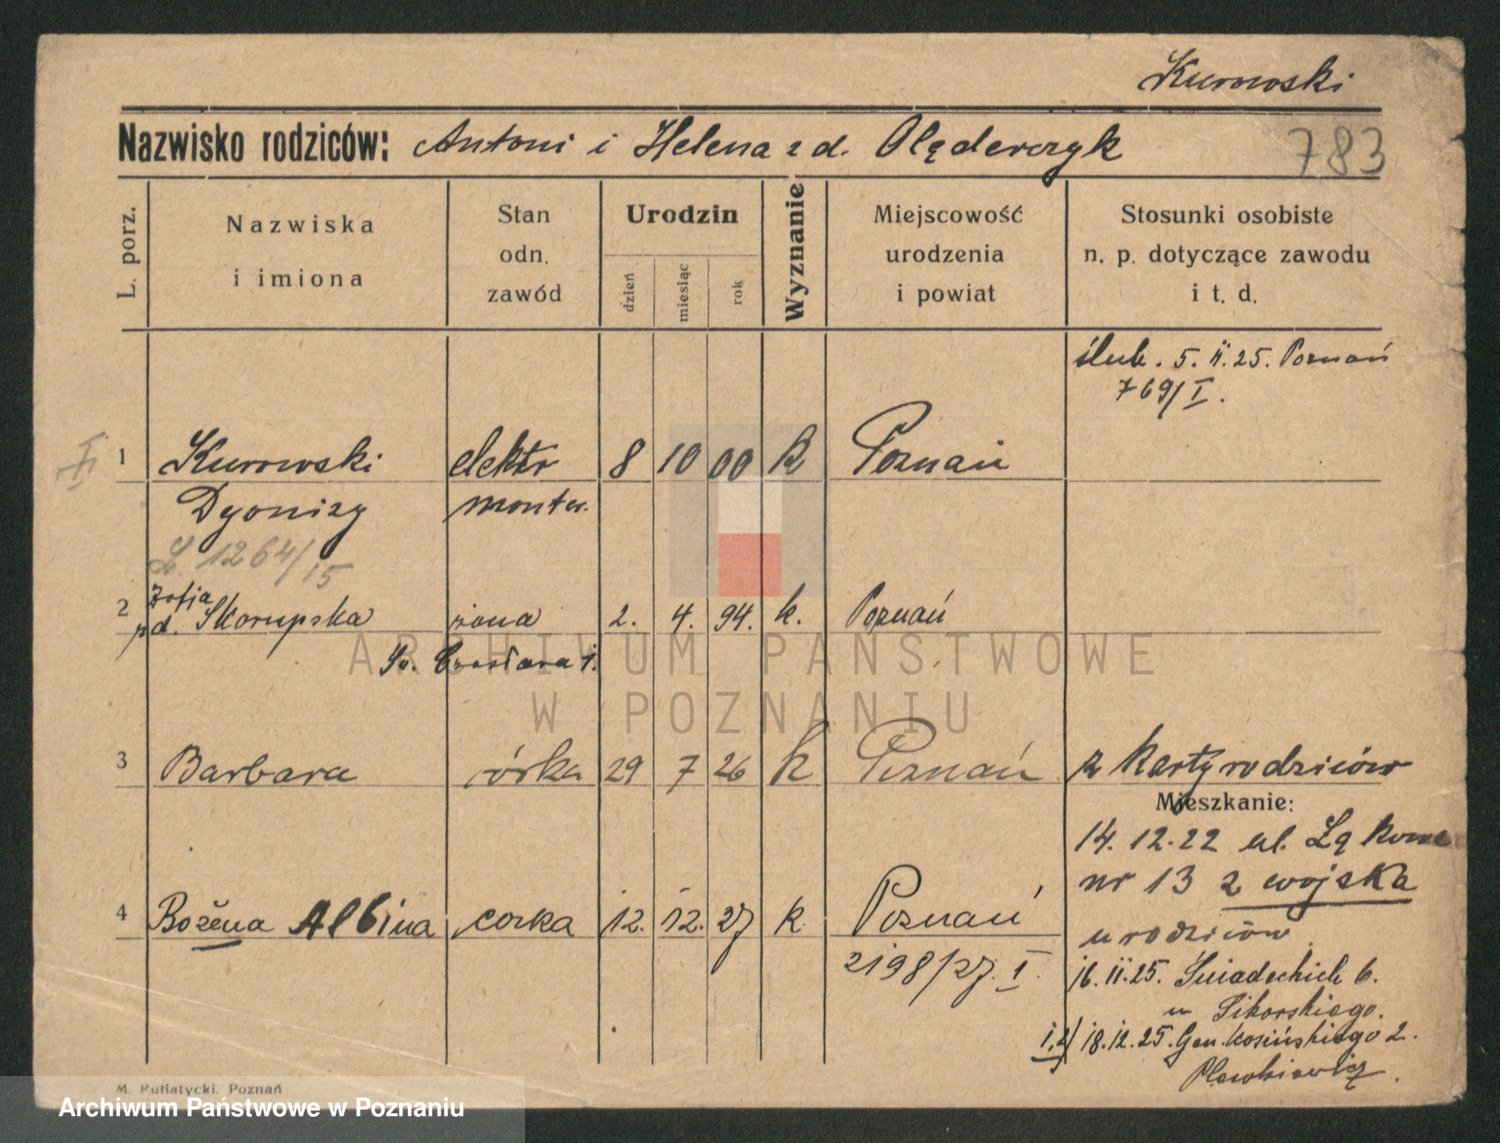 Kurowski
Nazwisko rodziców: Antoni i Helena z d. Olęderczyk
783
L. porz.
Nazwiska i imiona
Stan odn. zawód
Urodzin
dzień
miesiąc
rok
Wyznanie
Miejscowość urodzenia i powiat
Stosunki osobiste n. p. dotyczące zawodu i t. d.
ślub. 5. II. 25. Poznań
769/I.
I
1 Kurowski elektr 8 10 00 k Poznań
Dyonizy monter.
L. 1264/15
Zofja
2 z d. Skorupska żona 2. 4. 94. k. Poznań
3 Barbara córka 29 7 26 k Poznań z karty rodziców
Mieszkanie:
14. 12. 22 ul. Łąkowa
nr 13 z wojska
4 Bożena Albina corka 12. 12. 27 k. Poznań
u rodziców
2198/27. I.
16. II. 25. Śniadeckich 6.
u Sikorskiego.
1,2/ 18. 12. 25. Gen. Kosińskiego 2.
M. Putiatycki, Poznań
ARCHIWUM PAŃSTWOWE
W POZNANIU
Archiwum Państwowe w Poznaniu